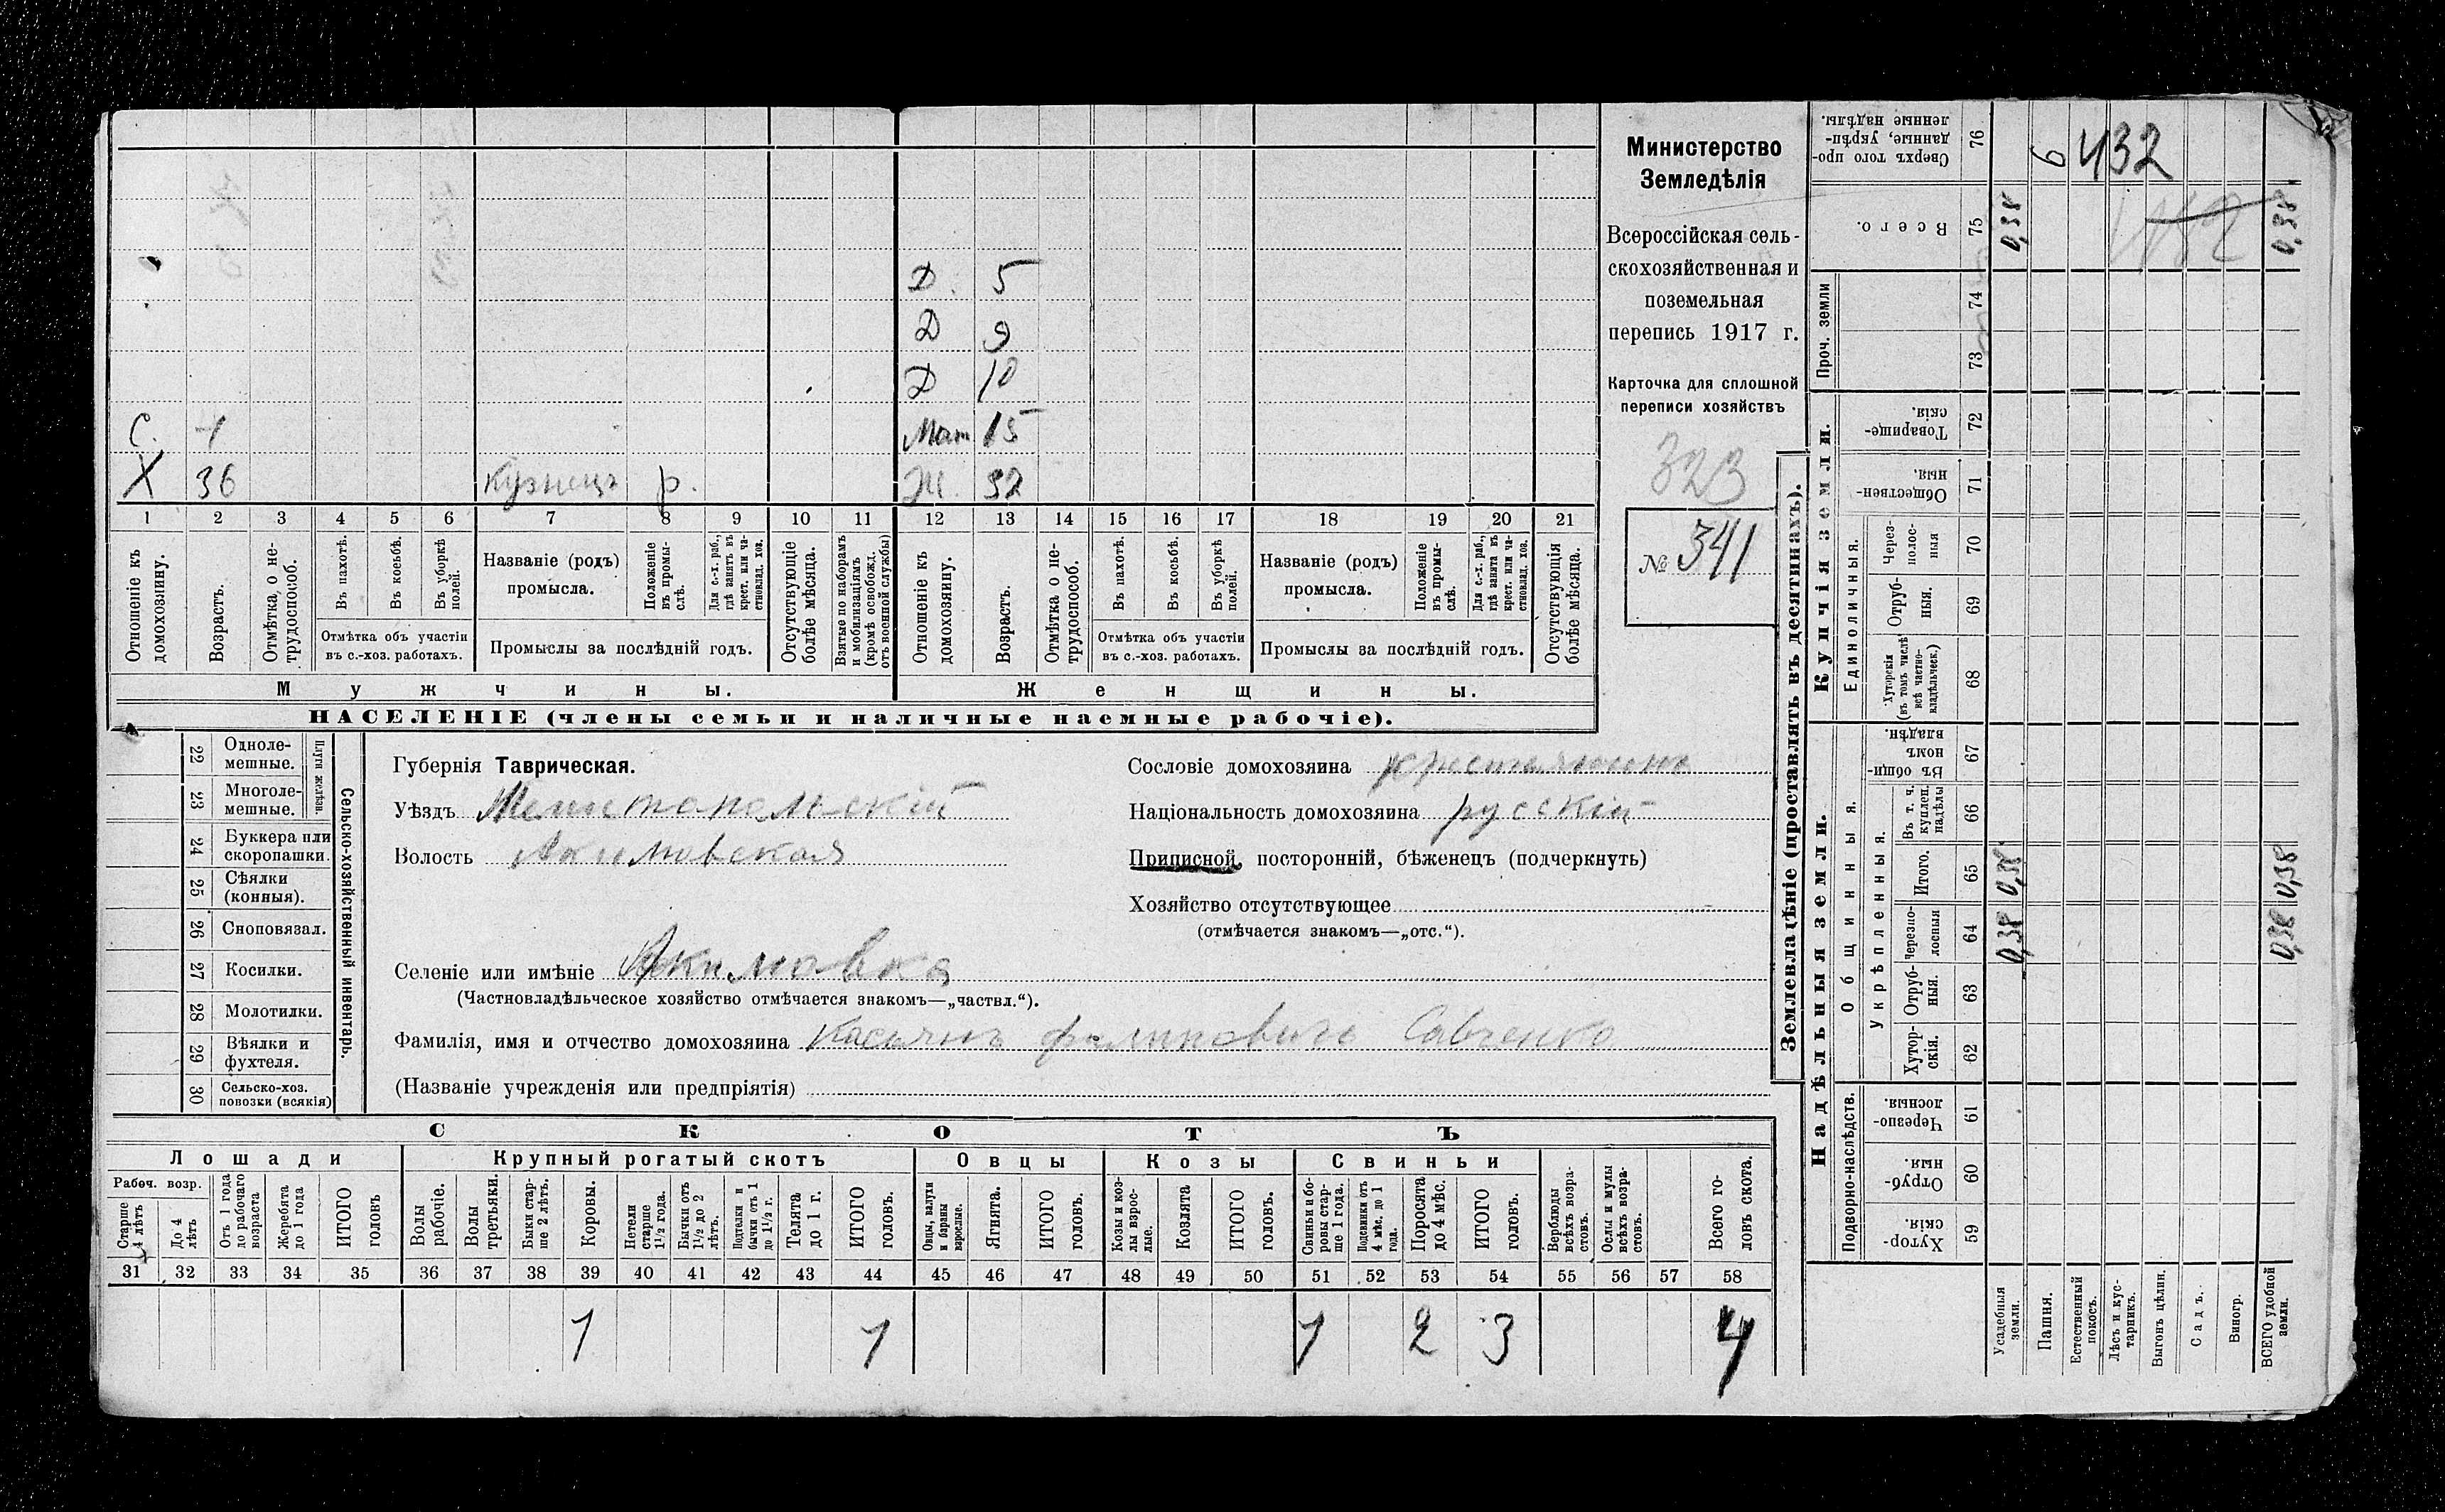 Д. 5
Д 9
Д 10
С. 1 Мат 15
Х 36 кузнецъ р. Ж. 32
1 2 3 4 5 6 7 8 9 10 11 12 13 14 15 16 17 18 19 20 21
Отношеніе къ домохозяину.
Возрастъ.
Отмѣтка о не-трудоспособ.
Въ пахотѣ.
Въ косьбѣ.
Въ уборкѣ полей.
Отмѣтка объ участіи
въ с.-хоз. работахъ.
Названіе (родъ)
промысла.
Положеніе въ промы-слѣ.
Для с.-х. раб., гдѣ занятъ въ крест. или ча-стновлад. хоз.
Промыслы за послѣдній годъ.
Отсутствующіе болѣе мѣсяца.
Взятые по наборамъ и мобилизаціямъ (кромѣ освобожд. отъ военной службы)
Отношеніе къ домохозяину.
Возрастъ.
Отмѣтка о не-трудоспособ.
Въ пахотѣ.
Въ косьбѣ.
Въ уборкѣ полей.
Отмѣтка объ участіи
въ с.-хоз. работахъ.
Названіе (родъ)
промысла.
Положеніе въ промы-слѣ.
Для с.-х. раб., гдѣ занята въ крест. или ча-стновлад. хоз.
Промыслы за послѣдній годъ.
Отсутствующія болѣе мѣсяца.
Мужчины. Женщины.
НАСЕЛЕНІЕ (члены семьи и наличные наемные рабочіе).
Министерство
Земледѣлія
Всероссійская сель-
скохозяйственная и
поземельная
перепись 1917 г.
Карточка для сплошной
переписи хозяйствъ
323
№ 341
22 Одноле-мешные.
23 Многоле-мешные.
Плуги желѣзн.
24 Буккера или скоропашки.
25 Сѣялки (конныя).
26 Сноповязал.
27 Косилки.
28 Молотилки.
29 Вѣялки и фухтеля.
30 Сельско-хоз. повозки (всякія)
Сельско-хозяйственный инвентарь.
Губернія Таврическая.
Уѣздъ Мелитопольскій
Волость Акимовская
Селеніе или имѣніе Акимовка
(Частновладѣльческое хозяйство отмѣчается знакомъ—„частвл.“).
Фамилія, имя и отчество домохозяина Касьянъ Савченко
(Названіе учрежденія или предпріятія)
Сословіе домохозяина крестьянинъ
Національность домохозяина русскій
Приписной, посторонній, бѣженецъ (подчеркнуть)
Хозяйство отсутствующее
(отмѣчается знакомъ—„отс.“).
СКОТЪ
Лошади Крупный рогатый скотъ Овцы Козы Свиньи
Рабоч. возр.
Старше 4 лѣтъ
До 4 лѣтъ
Отъ 1 года до рабочаго возраста
Жеребята до 1 года
ИТОГО головъ
Волы рабочіе.
Волы третьяки.
Быки стар-ше 2 лѣтъ.
Коровы.
Нетели старше 1½ года.
Бычки отъ 1½ до 2 лѣтъ.
Подтелки и бычки отъ 1 до 1½ г.
Телята до 1 г.
ИТОГО головъ.
Овцы, валухи и бараны взрослые.
Ягнята.
ИТОГО головъ.
Козы и коз-лы взрос-лые.
Козлята
ИТОГО головъ.
Свиньи и бо-ровы стар-ше 1 года.
Подсвинки отъ 4 мѣс. до 1 года.
Поросята до 4 мѣс.
ИТОГО головъ.
Верблюды всѣхъ возра-стовъ.
Ослы и мулы всѣхъ возра-стовъ.
Всего го-ловъ скота.
31 32 33 34 35 36 37 38 39 40 41 42 43 44 45 46 47 48 49 50 51 52 53 54 55 56 57 58
1 1 1 2 3 4
Землевладѣніе (проставлять въ десятинахъ).
Надѣльныя земли.
Купчія земли.
Проч. земли
Подворно-наслѣдств.
Общинныя.
Укрѣпленныя.
Единоличныя.
Хутор-скія. 59
Отруб-ныя. 60
Черезпо-лосныя. 61
Хутор-скія. 62
Отруб-ныя. 63
Черезпо-лосныя 64
Итого. 65
Въ т. ч. куплен. надѣлы 66
Въ общи-номъ владѣн. 67
Хуторскія (въ томъ числѣ всѣ частно-владѣльческ.) 68
Отруб-ныя. 69
Через-полос-ныя 70
Обществен-ныя. 71
Товарище-скія. 72
73
74
Всего. 75
Сверхъ того про-данные, укрѣп-ленные надѣлы. 76
6 432
0,38 0,38
0,38 0,38
0,38 0,38
Усадебныя земли.
Пашня.
Естественный покосъ.
Лѣсъ и кус-тарникъ.
Выгонъ цѣлин.
Садъ.
Виногр.
ВСЕГО удобной земли.